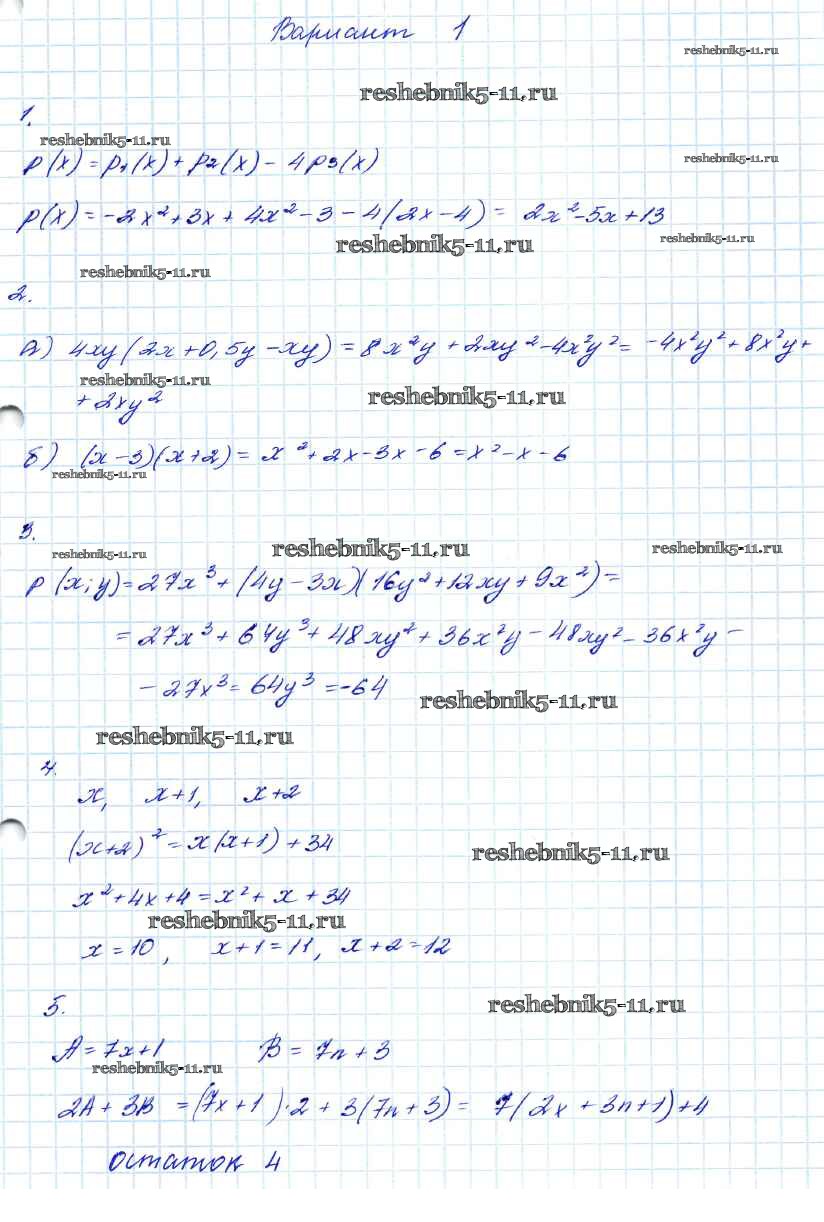 Вариант 1
reshebnik5-11.ru
reshebnik5-11.ru
1.
reshebnik5-11.ru
reshebnik5-11.ru
p(x) = p₁(x) + p₂(x) - 4p₃(x)
p(x) = -2x² + 3x + 4x² - 3 - 4(2x - 4) = 2x² - 5x + 13
reshebnik5-11.ru
reshebnik5-11.ru
reshebnik5-11.ru
2.
а) 4xy(2x + 0,5y - xy) = 8x²y + 2xy² - 4x²y² = -4x²y² + 8x²y +
reshebnik5-11.ru
+ 2xy²
reshebnik5-11.ru
б) (x - 3)(x + 2) = x² + 2x - 3x - 6 = x² - x - 6
reshebnik5-11.ru
3.
reshebnik5-11.ru
reshebnik5-11.ru
reshebnik5-11.ru
p(x;y) = 27x³ + (4y - 3x)(16y² + 12xy + 9x²) =
= 27x³ + 64y³ + 48xy² + 36x²y - 48xy² - 36x²y -
- 27x³ = 64y³ = -64
reshebnik5-11.ru
reshebnik5-11.ru
4.
x, x+1, x+2
(x+2)² = x(x+1) + 34
reshebnik5-11.ru
x² + 4x + 4 = x² + x + 34
reshebnik5-11.ru
x = 10, x + 1 = 11, x + 2 = 12
5.
reshebnik5-11.ru
A = 7x + 1 B = 7n + 3
reshebnik5-11.ru
2A + 3B = (7x + 1)·2 + 3(7n + 3) = 7(2x + 3n + 1) + 4
остаток 4